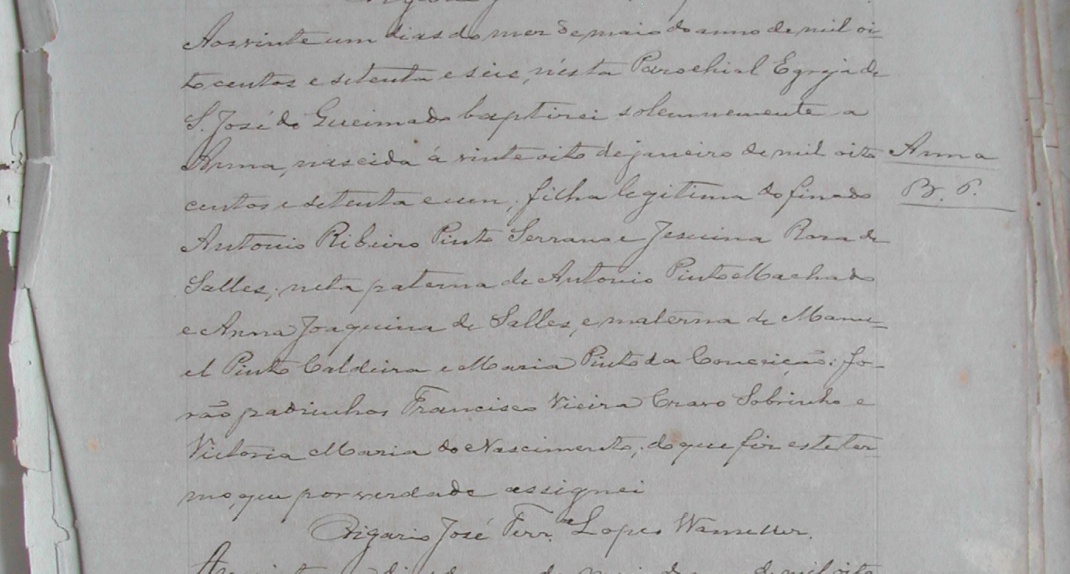 Aos vinte um dias do mez de maio do anno de mil oi-
to centos e setenta e seis, nésta Parochial Egreja de
S. José do Queimado baptizei solemnemente a
Anna, nascida á vinte oito de janeiro de mil oito
centos e setenta e um, filha legitima do finado
Antonio Ribeiro Pinto Serrano e Jesuina Rosa de
Salles; neta paterna de Antonio Pinto Machado
e Anna Joaquina de Salles, e materna de Manu-
el Pinto Caldeira e Maria Pinto da Conceição; fo-
rão padrinhos Francisco Vieira Cravo Sobrinho e
Victoria Maria do Nascimento; do que fiz este ter-
mo, que por verdade assignei
Vigario José Ferr.ª Lopes Wanzeller.
Anna
B. P.